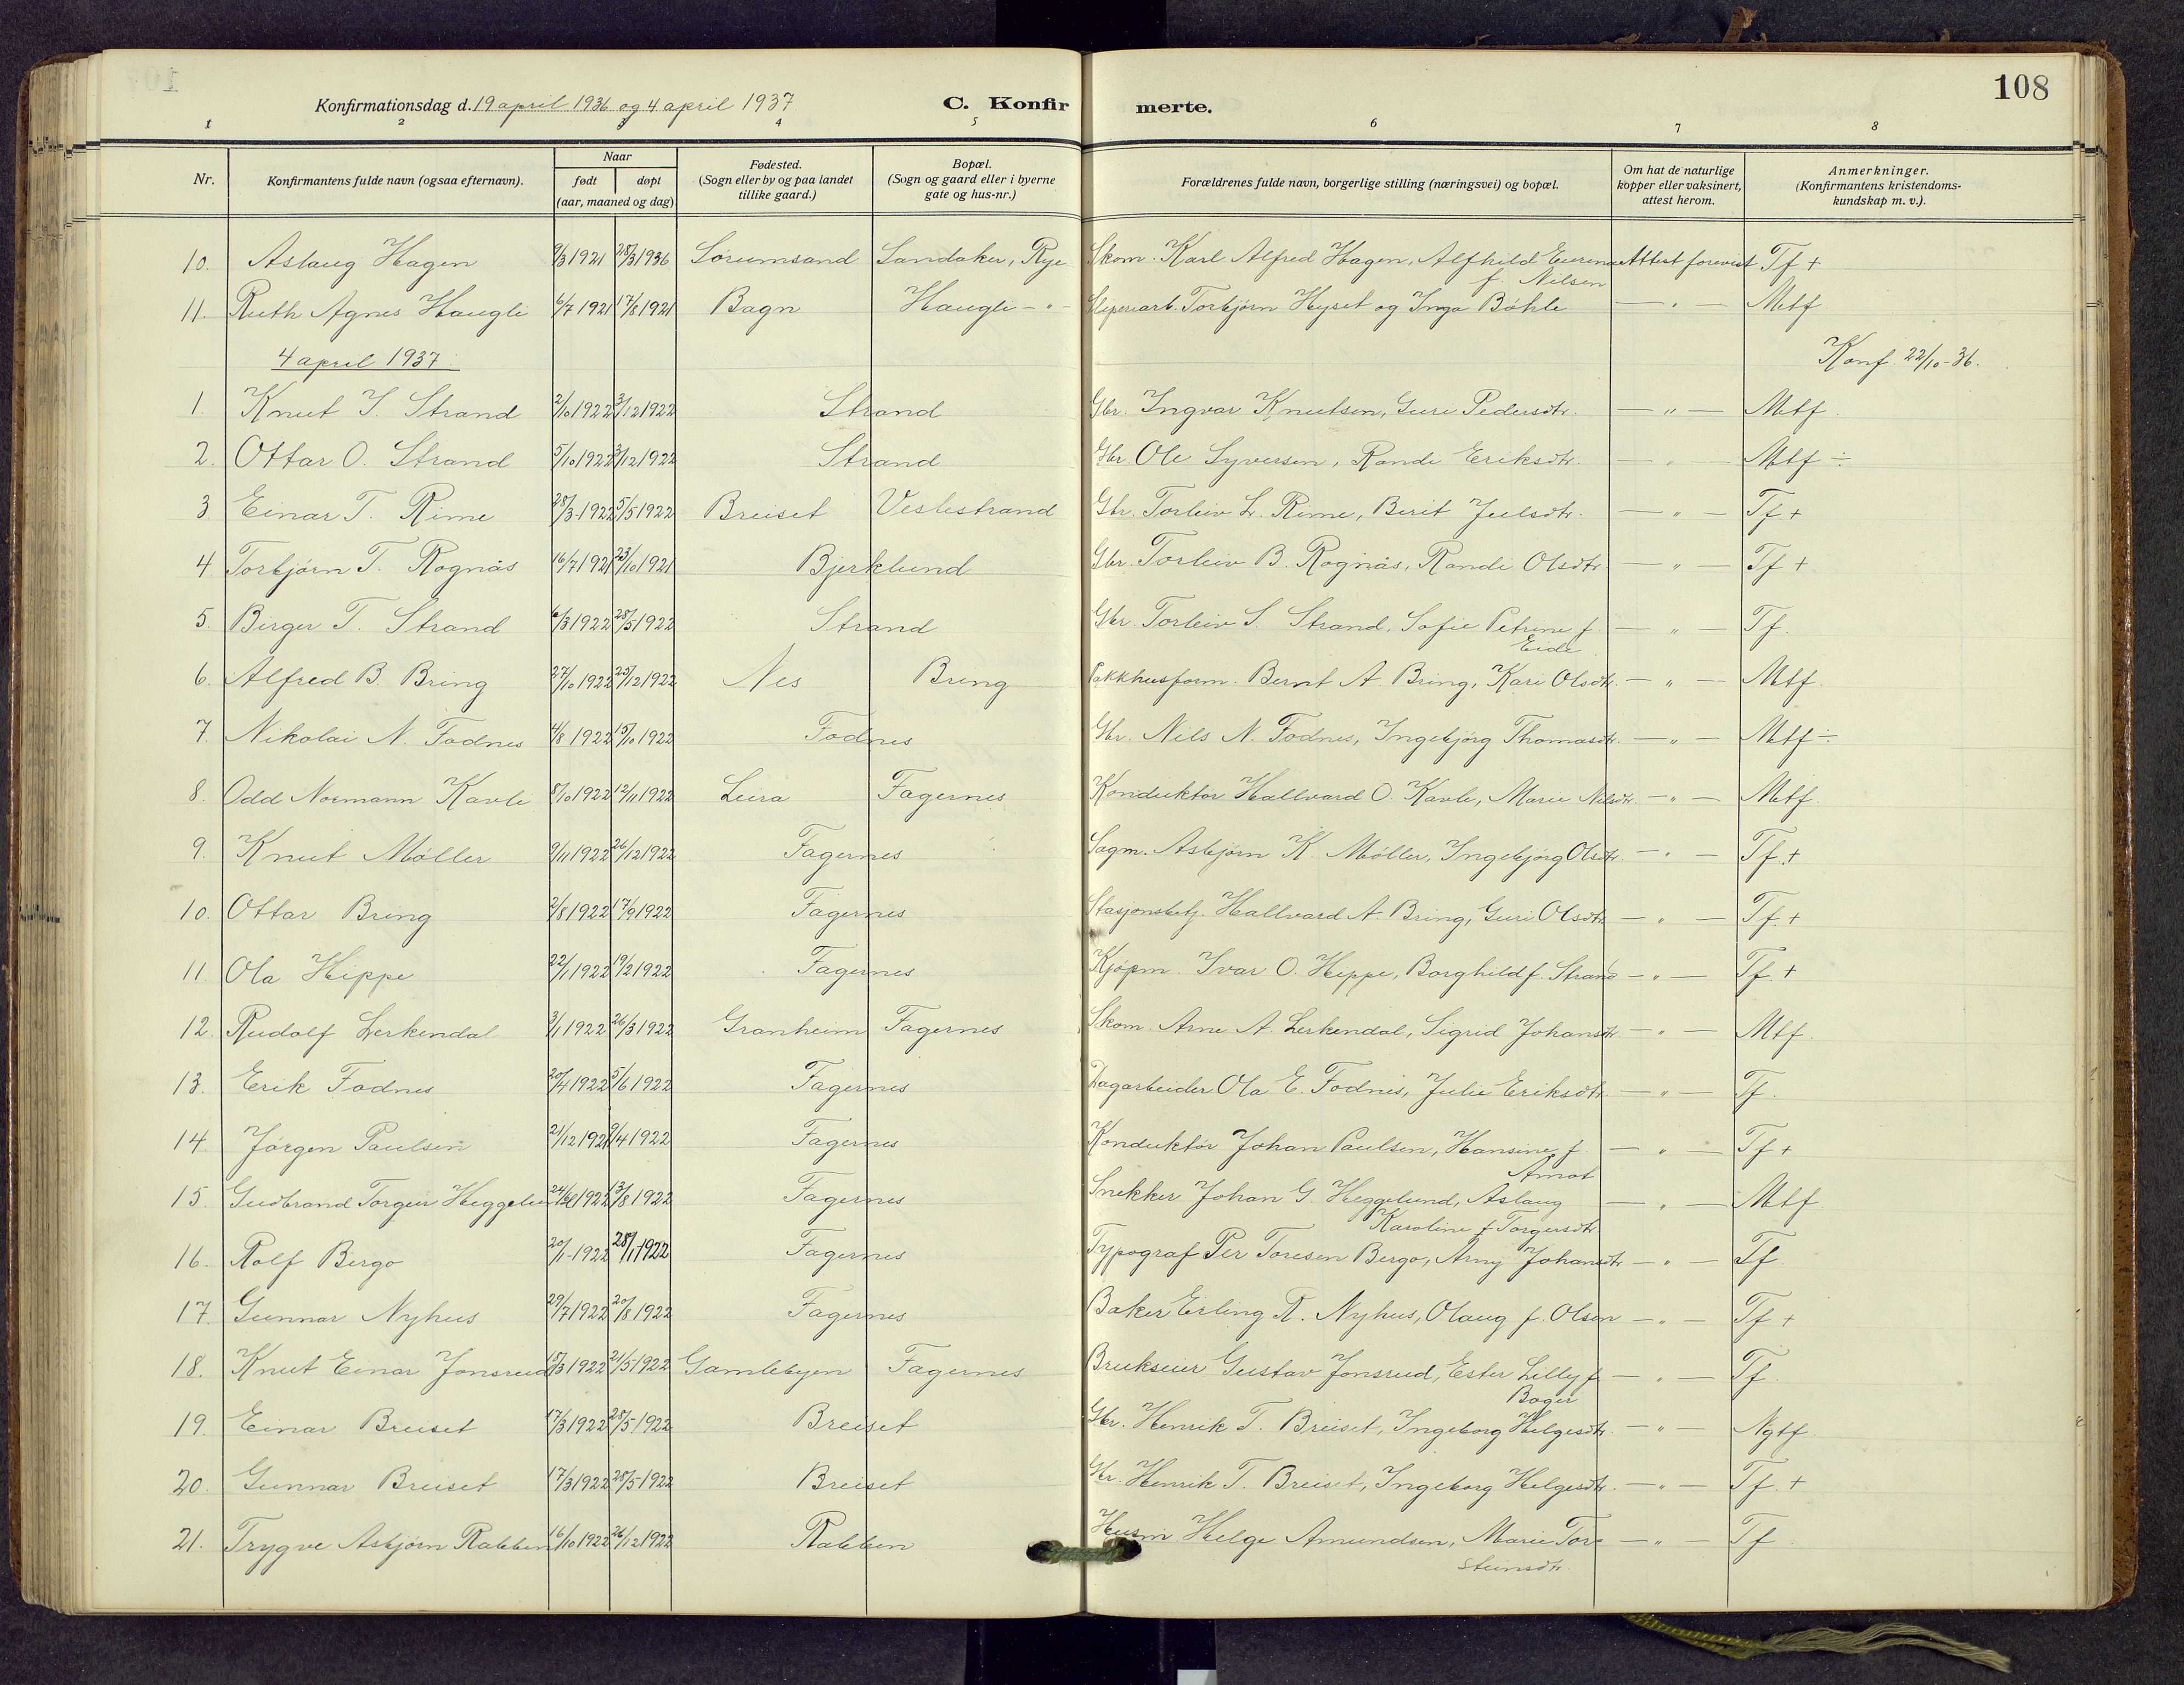 108
Konfirmationsdag d. 19 april 1936 og 4 april 1937 C. Konfirmerte.
1 2 3 4 5 6 7 8
Nr. Konfirmantens fulde navn (ogsaa efternavn). Naar født døpt (aar, maaned og dag) Fødested. (Sogn eller by og paa landet tillike gaard.) Bopæl. (Sogn og gaard eller i byerne gate og hus-nr.) Forældrenes fulde navn, borgerlige stilling (næringsvei) og bopæl. Om hat de naturlige kopper eller vaksinert, attest herom. Anmerkninger. (Konfirmantens kristendomskundskap m. v.).
10. Aslaug Hagen 9/3 1921 28/3 1936 Sørumsand Sandaker, Rye Skom. Karl Alfred Hagen, Alfhild f. Nilsen Attest forevist Tf +
11. Ruth Agnes Haugli 6/7 1921 17/8 1921 Bagn Haugli - " - Sliperiarb. Torbjørn Hyset og Inga Bøhle — " — Mtf
4 april 1937. Konf. 22/10-36.
1. Knut I. Strand 2/10 1922 3/12 1922 Strand Gbr. Ingvar Knutsen, Guri Pedersdtr. — " — Mtf.
2. Ottar O. Strand 5/10 1922 3/12 1922 Strand Gbr. Ole Syversen, Randi Eriksdtr. — " — Mtf ÷
3 Einar T. Rime 28/3-1922 5/5 1922 Breiset Veslestrand Gbr. Torleiv L. Rime, Berit Juelsdtr. — " — Tf. +
4. Torbjørn T. Rognås 16/7 1921 23/10 1921 Bjerklund Gbr. Torleiv B. Rognås, Randi Olsdtr — " — Tf +
5. Birger T. Strand 6/3 1922 28/5 1922 Strand Gbr. Torleiv S. Strand, Sofie Petrine f. Eide — " — Tf.
6. Alfred B. Bring 27/10 1922 25/12 1922 Nes Bring Pakkhusform. Bernt A. Bring, Kari Olsdtr. — " — Mtf.
7. Nikolai N. Fodnes 4/8 1922 15/10 1922 Fodnes Gbr. Nils N. Fodnes, Ingebjørg Thomasdtr. — " — Mtf ÷
8. Odd Normann Kavli 8/10 1922 12/11 1922 Leira Fagernes Konduktør Hallvard O. Kavli, Marie Nilsdtr. — " — Mtf.
9. Knut Møller 9/11 1922 26/12 1922 Fagernes Sagm. Asbjørn K. Møller, Ingebjørg Olsdtr. — " — Tf. +
10. Ottar Bring 2/8 1922 17/9 1922 Fagernes Stasjonsbetj. Hallvard A. Bring, Guri Olsdtr — " — Tf. +
11. Ola Hippe 22/1 1922 19/2 1922 Fagernes Kjøpm. Ivar O. Hippe, Borghild f. Strand — " — Tf. +
12. Rudolf Lerkendal 3/1 1922 26/3 1922 Granheim Fagernes Skom. Arne A. Lerkendal, Sigrid Johansdtr — " — Mtf.
13. Erik Fodnes 20/4 1922 5/6 1922 Fagernes Dagarbeider Ola E. Fodnes, Julie Eriksdtr. — " — Tf.
14. Jørgen Paulsen 21/12 1921 9/4 1922 Fagernes Konduktør Johan Paulsen, Hansine f. Amot — " — Tf +
15. Gudbrand Torgeir Heggelund 24/6 1922 13/8 1922 Fagernes Snekker Johan G. Heggelund, Aslaug Karoline f. Torgersdtr — " — Mtf
16. Rolf Bergo 20/1-1922 28/1 1922 Fagernes Typograf Per Toresen Bergo, Arny Johansdtr — " — Tf.
17. Gunnar Nyhus 29/7 1922 20/8 1922 Fagernes Baker Erling R. Nyhus, Olaug f. Olsen — " — Tf +
18. Knut Einar Jonsrud 18/3 1922 21/5 1922 Gamlebyen Fagernes Brukseier Gustav Jonsrud, Ester Lilly f. Bager — " — Tf.
19. Einar Breiset 17/3 1922 28/5-1922 Breiset Gbr. Henrik T. Breiset, Ingeborg Helgesdtr. — " — Ngtf
20. Gunnar Breiset 17/3 1922 28/5-1922 Breiset Gbr. Henrik T. Breiset, Ingeborg Helgesdtr. — " — Tf. +
21. Trygve Asbjørn Rabben 16/10 1922 26/12 1922 Rabben Husm Helge Amundsen, Marie Torsteinsdtr. — " — Tf